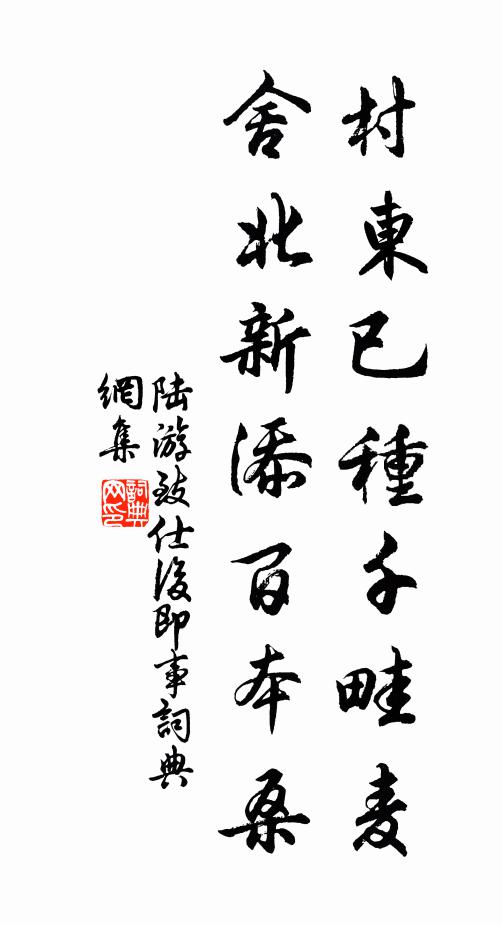 村東已種千畦麦
舍北新添百本桑
陆游致仕後即事詞典
網集
詞典
网印